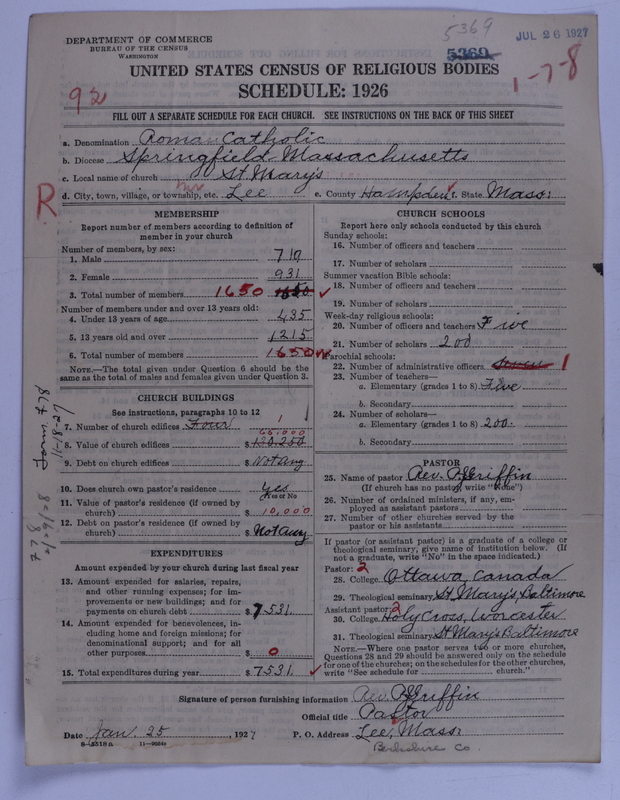 5369
JUL 26 1927
DEPARTMENT OF COMMERCE
BUREAU OF THE CENSUS
WASHINGTON
5369
UNITED STATES CENSUS OF RELIGIOUS BODIES
1-7-8
92
SCHEDULE: 1926
FILL OUT A SEPARATE SCHEDULE FOR EACH CHURCH. SEE INSTRUCTIONS ON THE BACK OF THIS SHEET
a. Denomination Roman Catholic
b. Diocese Springfield Massachusetts
c. Local name of church St Mary's
R
d. City, town, village, or township, etc. Lee e. County Hampden f. State Mass:
MEMBERSHIP
Report number of members according to definition of
member in your church
Number of members, by sex:
1. Male 719
2. Female 931
3. Total number of members 1650 1650
Number of members under and over 13 years old:
4. Under 13 years of age 435
5. 13 years old and over 1215
6. Total number of members 1650
NOTE.—The total given under Question 6 should be the
same as the total of males and females given under Question 3.
CHURCH BUILDINGS
See instructions, paragraphs 10 to 12
7. Number of church edifices Four 1
8. Value of church edifices $ 130,250
9. Debt on church edifices $ Not any
10. Does church own pastor's residence yes
Yes or No
11. Value of pastor's residence (if owned by
church) $ 10,000
12. Debt on pastor's residence (if owned by
church) $ Not any
Form 778
11-18-27
778
EXPENDITURES
Amount expended by your church during last fiscal year
13. Amount expended for salaries, repairs,
and other running expenses; for im-
provements or new buildings; and for
payments on church debt $ 7531
14. Amount expended for benevolences, in-
cluding home and foreign missions; for
denominational support; and for all
other purposes $ 0
15. Total expenditures during year $ 7531
CHURCH SCHOOLS
Report here only schools conducted by this church
Sunday schools:
16. Number of officers and teachers
17. Number of scholars
Summer vacation Bible schools:
18. Number of officers and teachers
19. Number of scholars
Week-day religious schools:
20. Number of officers and teachers Five
21. Number of scholars 200
Parochial schools:
22. Number of administrative officers Seven 1
23. Number of teachers—
a. Elementary (grades 1 to 8) Five
b. Secondary
24. Number of scholars—
a. Elementary (grades 1 to 8) 200.
b. Secondary
PASTOR
25. Name of pastor Rev. Griffin
(If church has no pastor, write "None")
26. Number of ordained ministers, if any, em-
ployed as assistant pastors
27. Number of other churches served by the
pastor or his assistants
If pastor (or assistant pastor) is a graduate of a college or
theological seminary, give name of institution below. (If
not a graduate, write "No" in the space indicated.)
Pastor: 2
28. College Ottawa, Canada
29. Theological seminary St Mary's, Baltimore
Assistant pastor: 2
30. College Holy Cross, Worcester
31. Theological seminary St Mary's Baltimore
NOTE.—Where one pastor serves two or more churches,
Questions 28 and 29 should be answered only on the schedule
for one of the churches; on the schedules for the other churches,
write "See schedule for church."
Signature of person furnishing information Rev. Griffin
Official title Pastor
Date Jan. 25, 1927 P. O. Address Lee, Mass
8-5518 a 11-9684a
Berkshire Co.